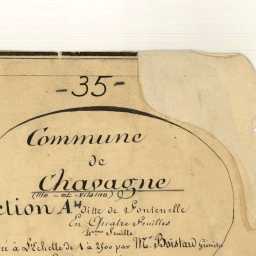 -35-
Commune
de
Chavagne
(Ille-et-Vilaine)
ction A dite de Fontenelle
En Quatre Feuilles
Feuille
à L'Echelle de 1 à 2500 par Mr Boistard